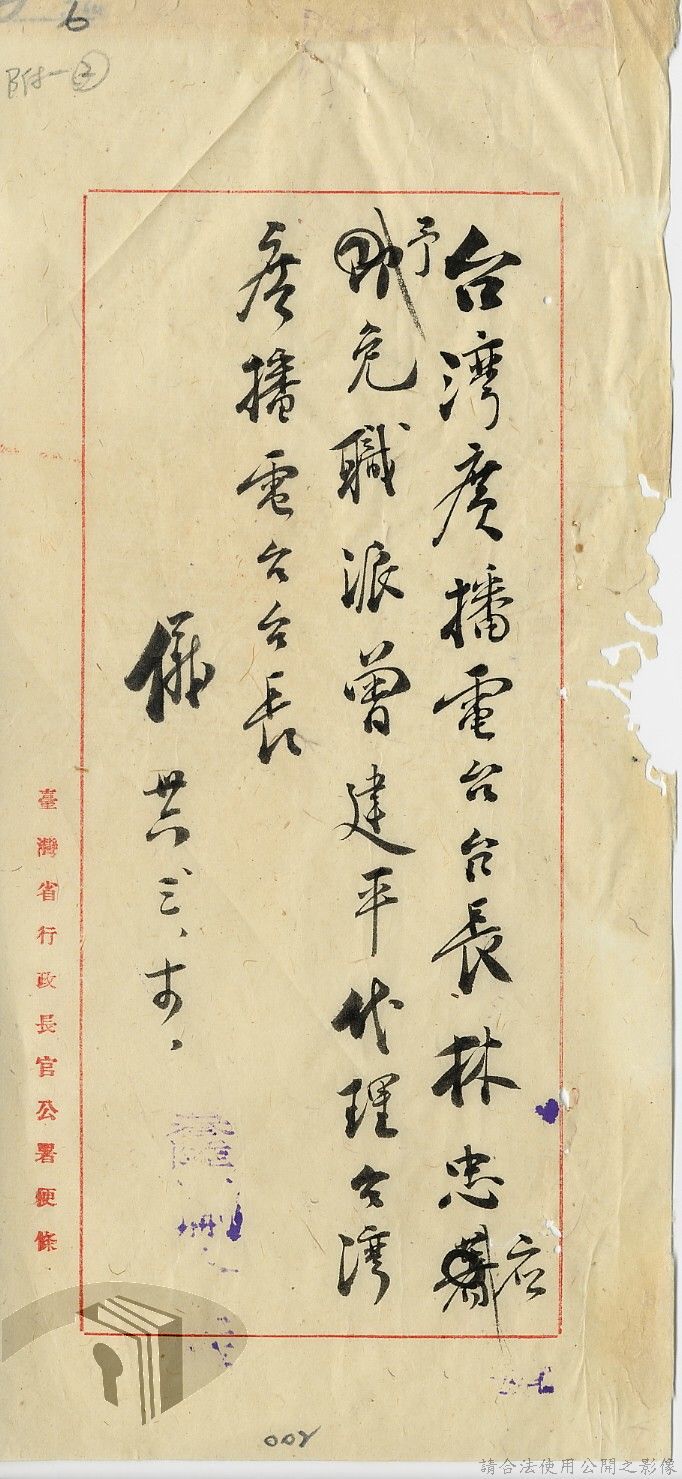 6
附一②
台湾廣播電台台長林忠着应
即予免職派曾建平代理台湾
广播電台台長
儀 卅六、三、十一、
臺灣省行政長官公署便條
002
請合法使用公開之影像